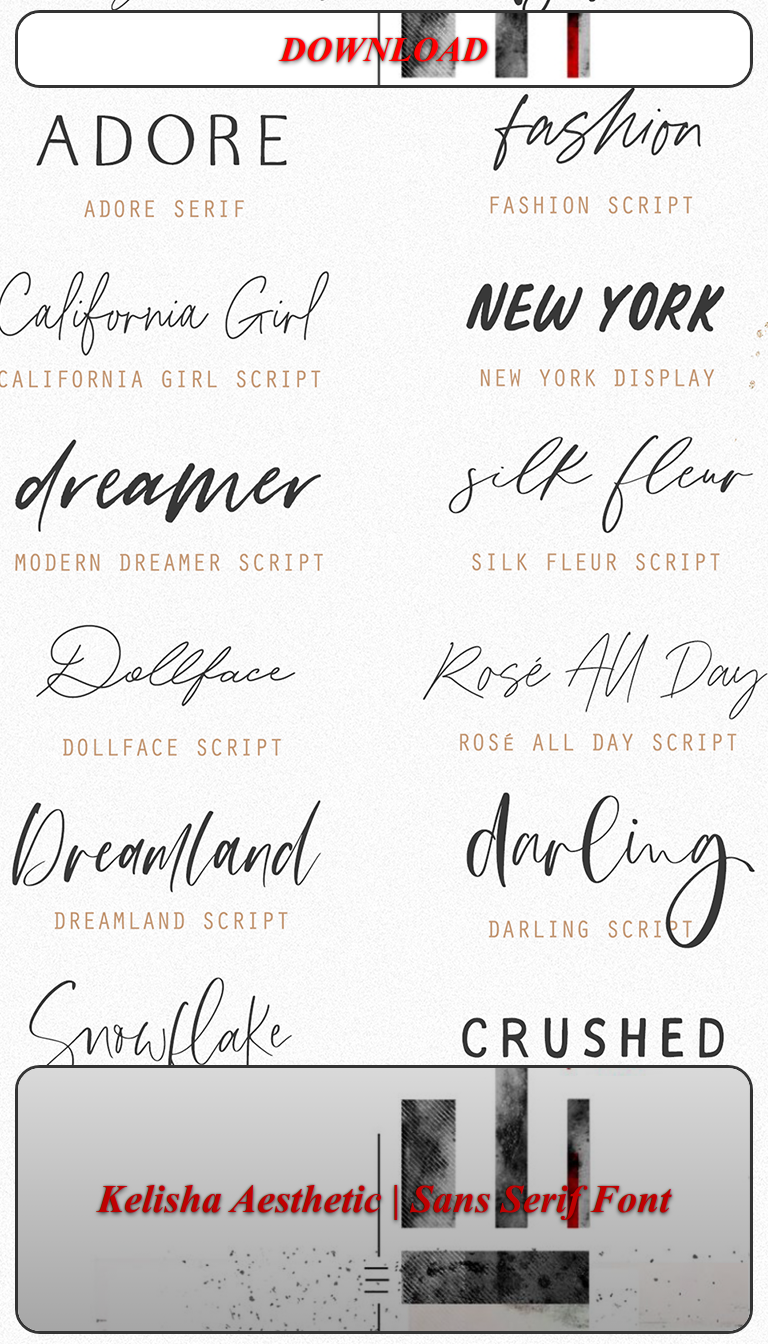 DOWNLOAD
ADORE
fashion
ADORE SERIF
FASHION SCRIPT
California Girl
NEW YORK
CALIFORNIA GIRL SCRIPT
NEW YORK DISPLAY
dreamer
silk fleur
MODERN DREAMER SCRIPT
SILK FLEUR SCRIPT
Dollface
Rosé All Day
DOLLFACE SCRIPT
ROSé ALL DAY SCRIPT
Dreamland
darling
DREAMLAND SCRIPT
DARLING SCRIPT
Snowflake
CRUSHED
Kelisha Aesthetic | Sans Serif Font